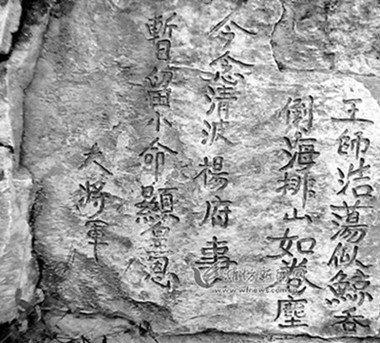 王師浩蕩似鯨吞
倒海排山如卷塵
今念清波楊府書
暫留小命顯皇恩
大將軍
www.wfnews.com.cn